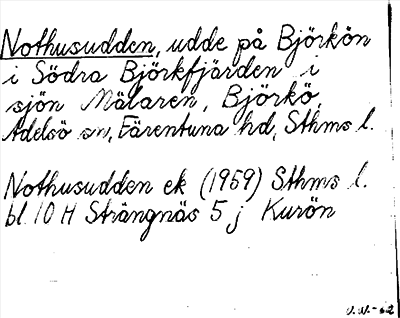 Nothusudden, udde på Björkön
i Södra Björkfjärden i
sjön Mälaren, Björkö,
Adelsö sn, Färentuna hd, Sthms l.
Nothusudden ek (1959) Sthms l.
bl. 10 H Strängnäs 5 j Kurön